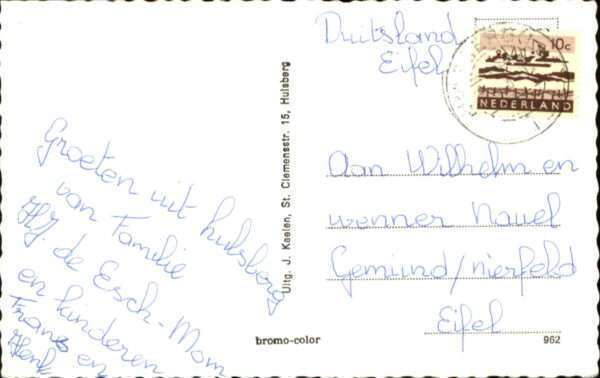 Duitsland
Eifel
10c
NEDERLAND
Groeten uit hulsberg
van Familie
H.J. de Esch-Mom
en kinderen
Frans en
Henk
Uitg. J. Kaelen, St. Clemensstr. 15, Hulsberg
Aan Wilhelm en
wenner Nauel
Gemünd/nierfeld
Eifel
bromo-color
962